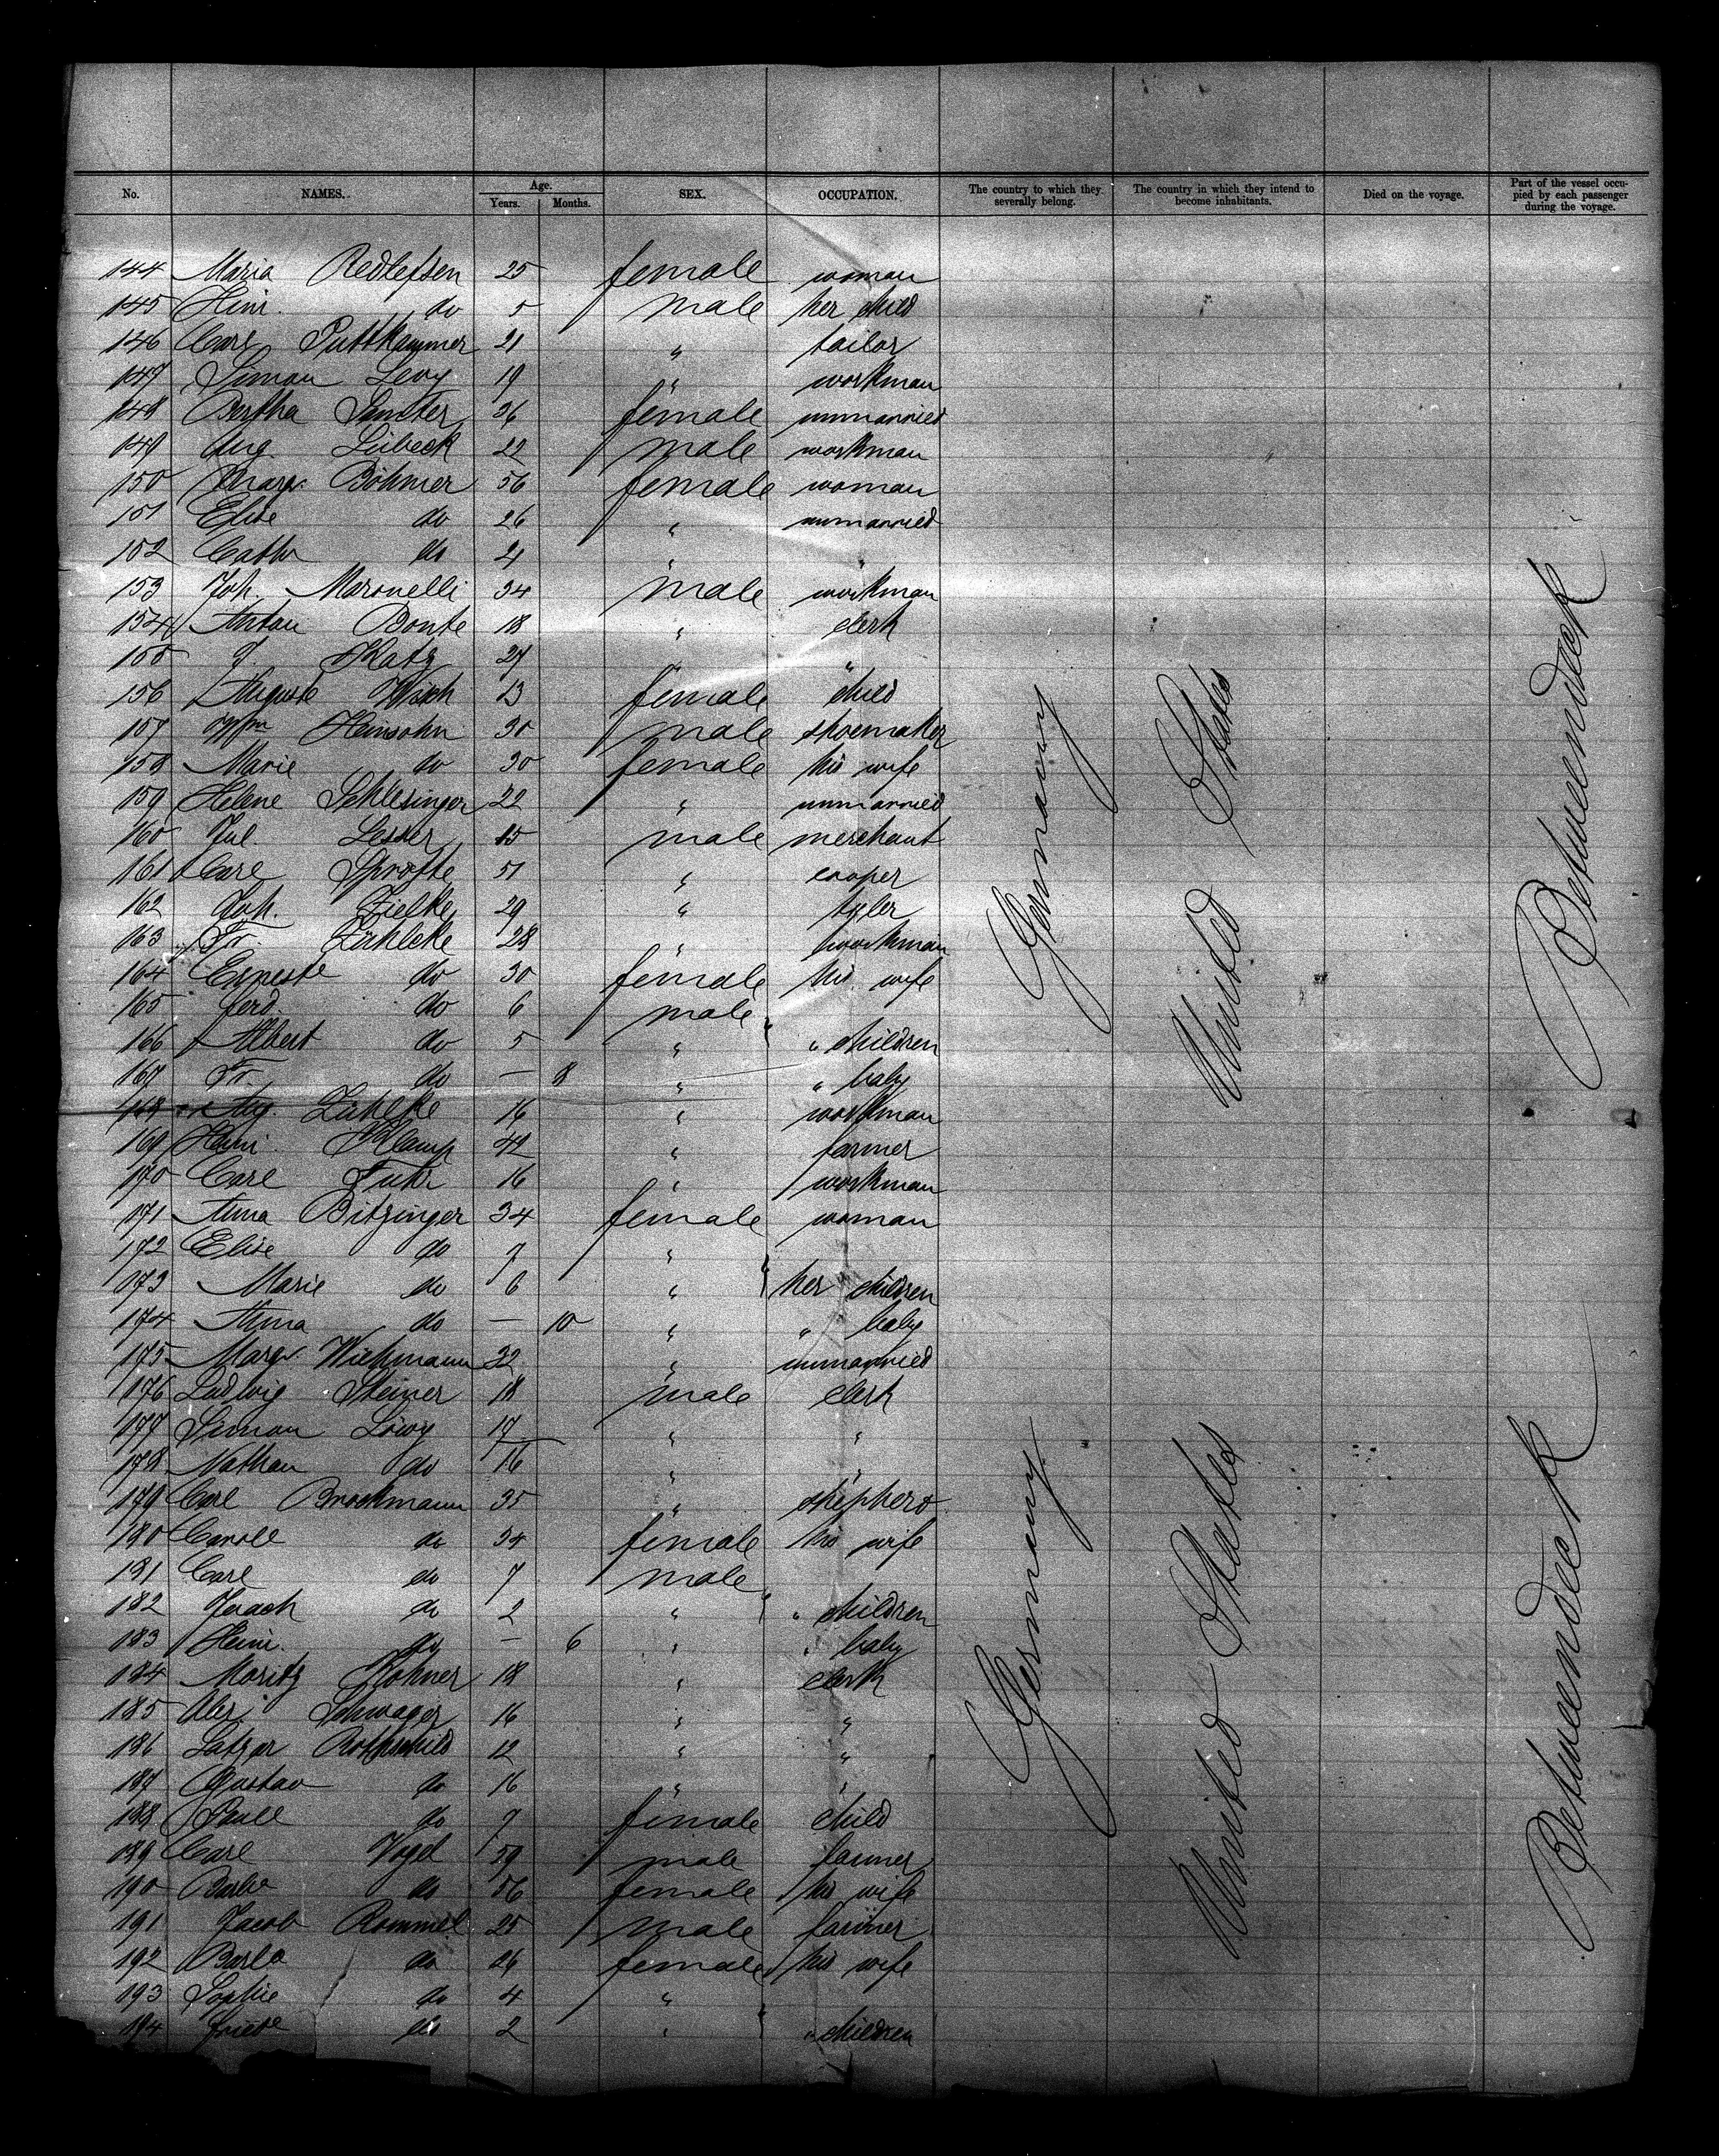 No. NAMES. Age. Years. Months. SEX. OCCUPATION. The country to which they severally belong. The country in which they intend to become inhabitants. Died on the voyage. Part of the vessel occupied by each passenger during the voyage.
144 Maria Redlefsen 25 female woman
145 Heinr. do 5 male her child
146 Carl Puttkammer 21 " tailor
147 Simon Levy 19 " workman
148 Bertha Samter 26 female unmarried
149 Aug. Lübeck 22 male workman
150 Marg. Böhmer 56 female woman
151 Elise do 26 " unmarried
152 Cathr do 21 " "
153 Joh. Maronelli 34 male workman
154 Anton Bonte 18 " clerk
155 J. Katz 27 " "
156 Auguste 13 female child
157 Wm Heinsohn 30 male shoemaker
158 Marie do 30 female his wife
159 Helene Schlesinger 22 " unmarried
160 Jul. Lesser 15 male merchant
161 Carl Sprotte 51 " cooper
162 Joh. Zielke 29 "
163 Fr. 28 " workman
164 Erneste do 30 female his wife
165 Ferd. do 6 male
166 Albert do 5 " " children
167 Fr. do — 8 " " baby
168 Aug. Zühlke 16 " workman
169 Heinr. 42 " farmer
170 Carl 16 " workman
171 Anna Bitzinger 34 female woman
172 Elise do 7 "
173 Marie do 6 " her children
174 Anna do — 10 " " baby
175 Margr. Wichmann 32 " unmarried
176 Ludwig Steiner 18 male clerk
177 Simon Löwy 17 " "
178 Nathan do 16 " "
179 Carl Brockmann 35 " shepherd
180 Caroll do 34 female his wife
181 Carl do 7 male
182 Joach do 2 " " children
183 Heinr. do — 6 " " baby
184 Moritz Kohner 18 " clerk
185 Schwager 16 " "
186 Latzar Rothschild 12 " "
187 Gustav do 16 " "
188 do 7 female child
189 Carl Vogel 59 male farmer
190 Barbr do 56 female his wife
191 Jacob Rommel 25 male farmer
192 Barba do 26 female his wife
193 Sophie do 4 "
194 Friede do 2 " " children
Germany
United States
Betweendeck
Germany
United States
Betweendeck